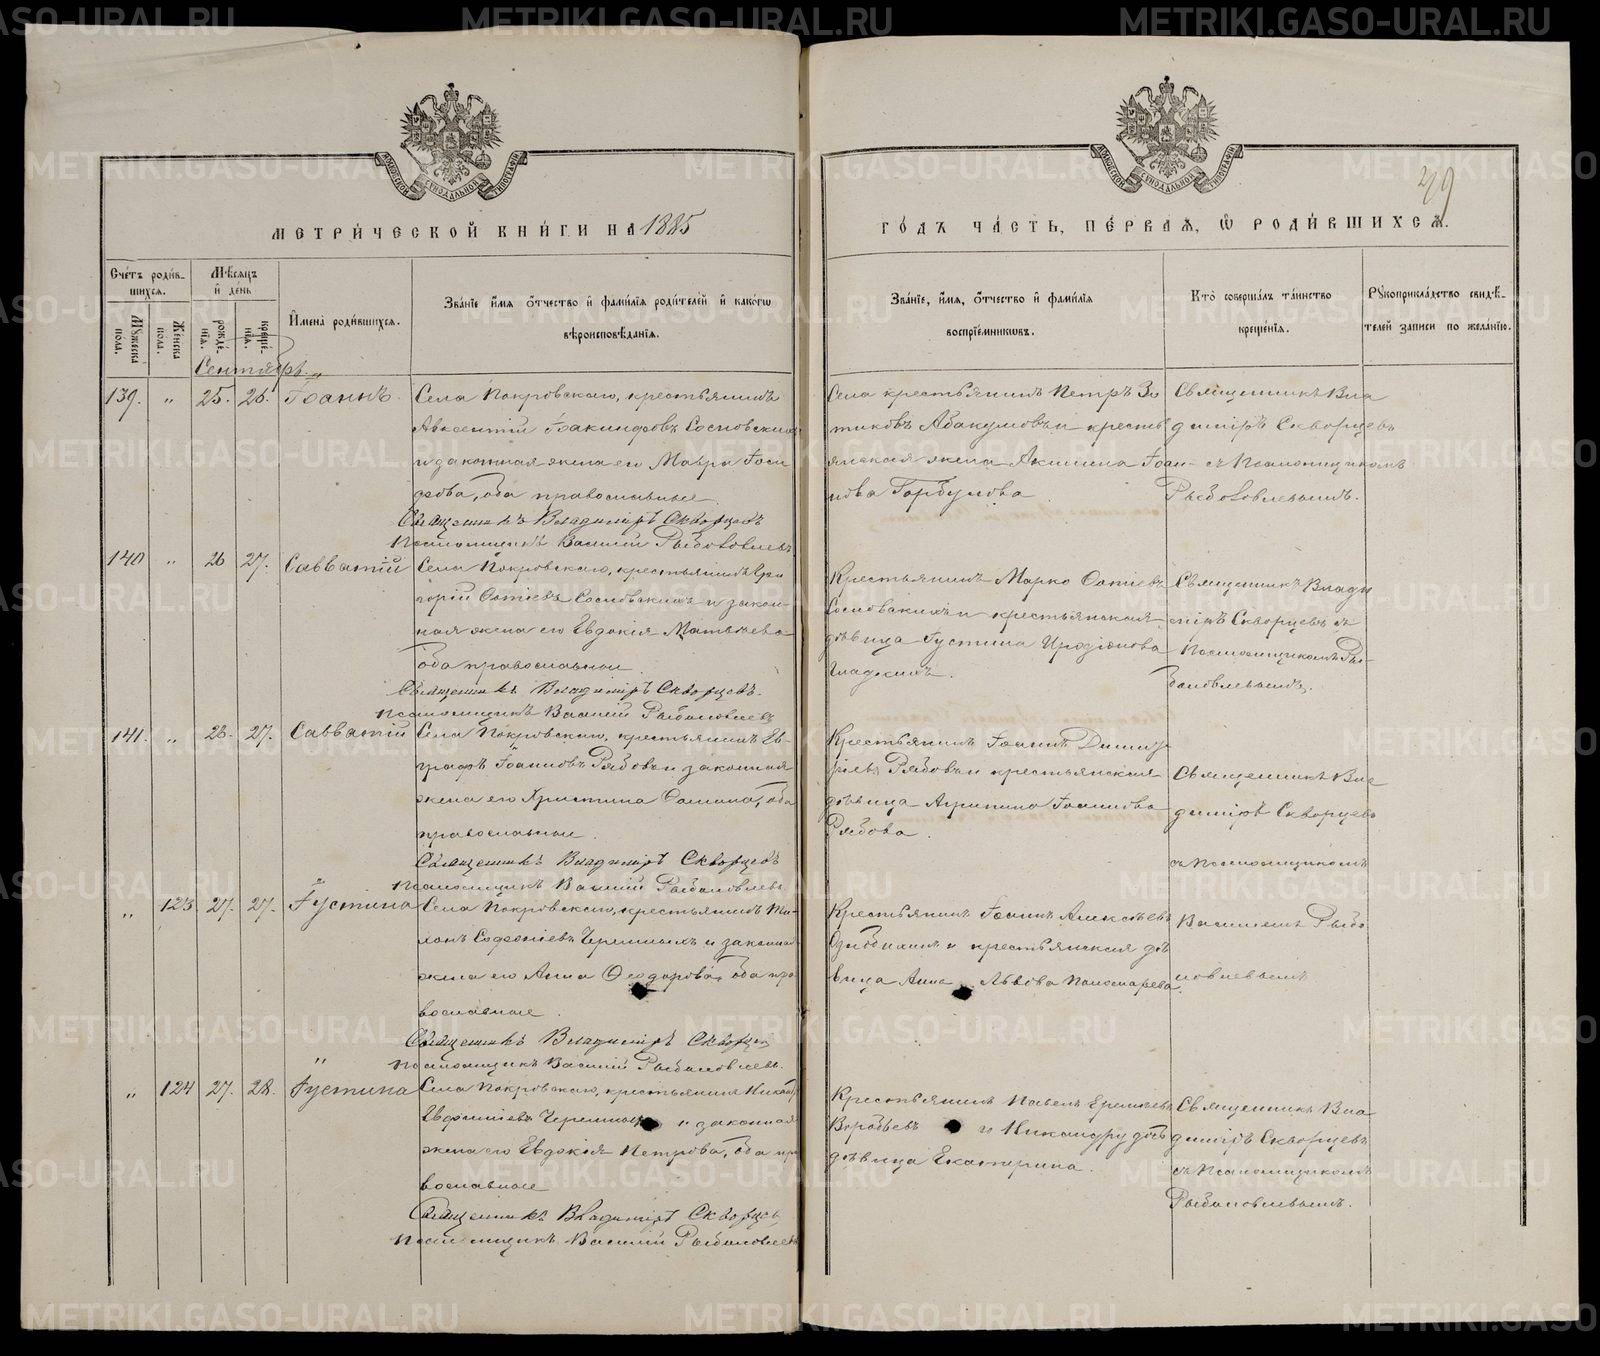 МЕТРИ́ЧЕСКОЙ КНИ́ГИ НА 1885
ГО́ДЪ ЧА́СТЬ, ПЕ́РВАѦ, Ѡ РОДИ́ВШИХСѦ.
29
Сче́тъ роди́в-
шихсѧ.
Мꙋ́жеска
пола.
Же́нска
пола.
Мѣ́сѧцъ
и҆ де́нь
рожде́-
нїѧ.
креще́-
нїѧ.
И҆мена̀ роди́вшихсѧ.
Зва́нїе и҆́мѧ ѻ҆́тчество и҆ фами́лїѧ роди́телей и҆ како́гѡ
вѣроисповѣ́данїѧ.
Зва́нїе, и҆́мѧ, ѻ҆́тчество и҆ фами́лїѧ
воспрїе́мникѡвъ.
Кто̀ соверша́лъ та́инство
креще́нїѧ.
Рꙋкоприкла́дство свидѣ́-
телей записи по жела́нїю.
Сентябрь
139. " 25. 26. Іоаннъ.
Села Покровскаго, крестьянинъ
Авксентій Іоакинфовъ Сосновскихъ
и законная жена его Мавра Іоси
фова, оба православные.
Священникъ Владиміръ Скворцевъ
Псаломщикъ Василій Рыболовлевъ
Села крестьянинъ Петръ Зо
тиковъ Абакумовъ и кресть
янская жена Акилина Іоан-
нова Горбунова
Священникъ Вла
диміръ Скворцевъ
съ Псаломщикомъ
Рыболовлевымъ.
140 " 26 27. Савватій
Села Покровскаго, крестьянинъ Гри
горій Фотіевъ Сосновскихъ и закон-
ная жена его Евдокія Матвѣева
оба православные
Священникъ Владиміръ Скворцевъ.
Псаломщикъ Василій Рыболовлевъ
Крестьянинъ Марко Фотіевъ
Сосновскихъ и крестьянская
дѣвица Густина
Гладкихъ.
Священникъ Влади
міръ Скворцевъ съ
Псаломщикомъ Ры-
боловлевымъ.
141. " 26. 27. Савватій
Села Покровскаго, крестьянинъ Ев-
графъ Іоанновъ Рябовъ и законная
жена его Христина Фомина, оба
православные.
Священникъ Владиміръ Скворцевъ
Псаломщикъ Василій Рыболовлевъ
Крестьянинъ Іоаннъ Димит
ріевъ Рябовъ и крестьянская
дѣвица Агрипина Іоаннова
Рябова.
Священникъ Вла
диміръ Скворцевъ
съ Псаломщикомъ
Василіемъ Рыбо
ловлевымъ
" 123 27. 27. Густина
Села Покровскаго, крестьянинъ
Софоніевъ Черемныхъ и законная
жена его Анна Ѳеодорова, оба пра
вославные.
Священникъ Владиміръ Скворцевъ
Псаломщикъ Василій Рыболовлевъ.
Крестьянинъ Іоаннъ Алексѣевъ
и крестьянская дѣ
вица Анна Львова Пономарева.
" 124 27. 28. Густина
Села Покровскаго, крестьянинъ
Евфиміевъ Черемныхъ и законная
жена его Евдокія Петрова, оба пра
вославные
Священникъ Владиміръ Скворцевъ
Псаломщикъ Василій Рыболовлевъ
Крестьянинъ Павелъ Ереміевъ
Воробьевъ и
дѣвица Екатерина.
Священникъ Вла
диміръ Скворцевъ
съ Псаломщикомъ
Рыболовлевымъ.
METRIKI.GASO-URAL.RU